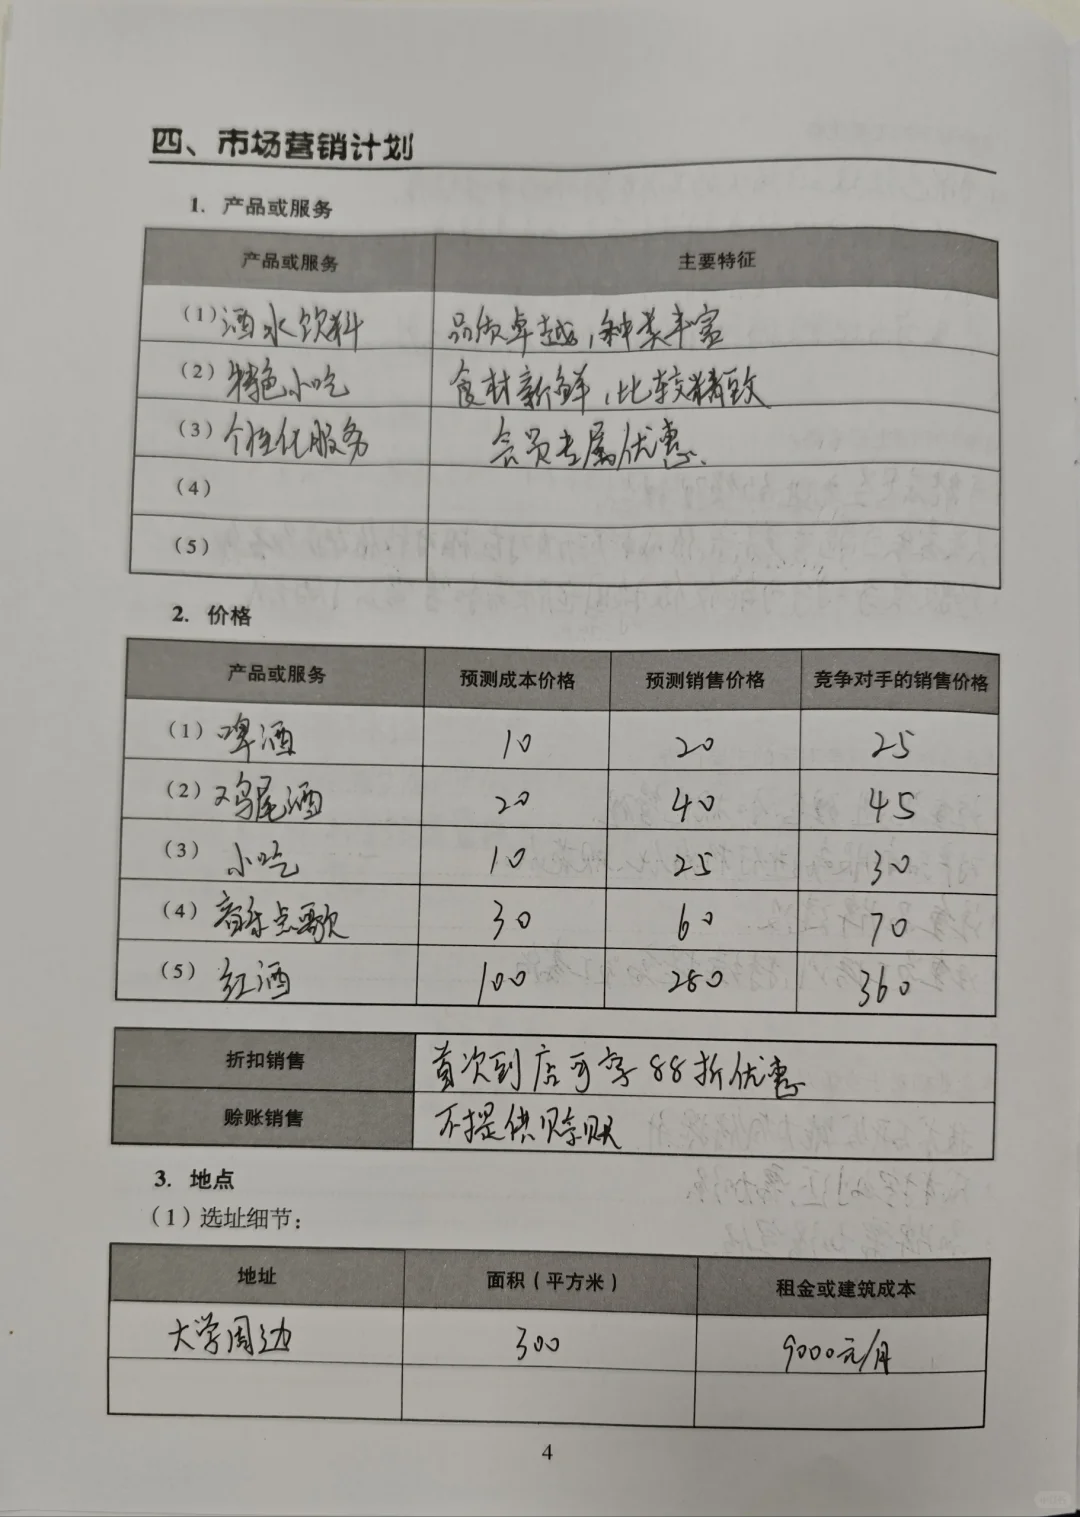 四、市场营销计划
1. 产品或服务
产品或服务 主要特征
(1) 酒水饮料 品质卓越，种类丰富
(2) 特色小吃 食材新鲜，比较精致
(3) 个性化服务 会员专属优惠.
(4)
(5)
2. 价格
产品或服务 预测成本价格 预测销售价格 竞争对手的销售价格
(1) 啤酒 10 20 25
(2) 鸡尾酒 20 40 45
(3) 小吃 10 25 30
(4) 音乐点歌 30 60 70
(5) 红酒 100 280 360
折扣销售 首次到店可享88折优惠
赊账销售 不提供赊账
3. 地点
(1) 选址细节：
地址 面积（平方米） 租金或建筑成本
大学周边 300 9000元/月
4